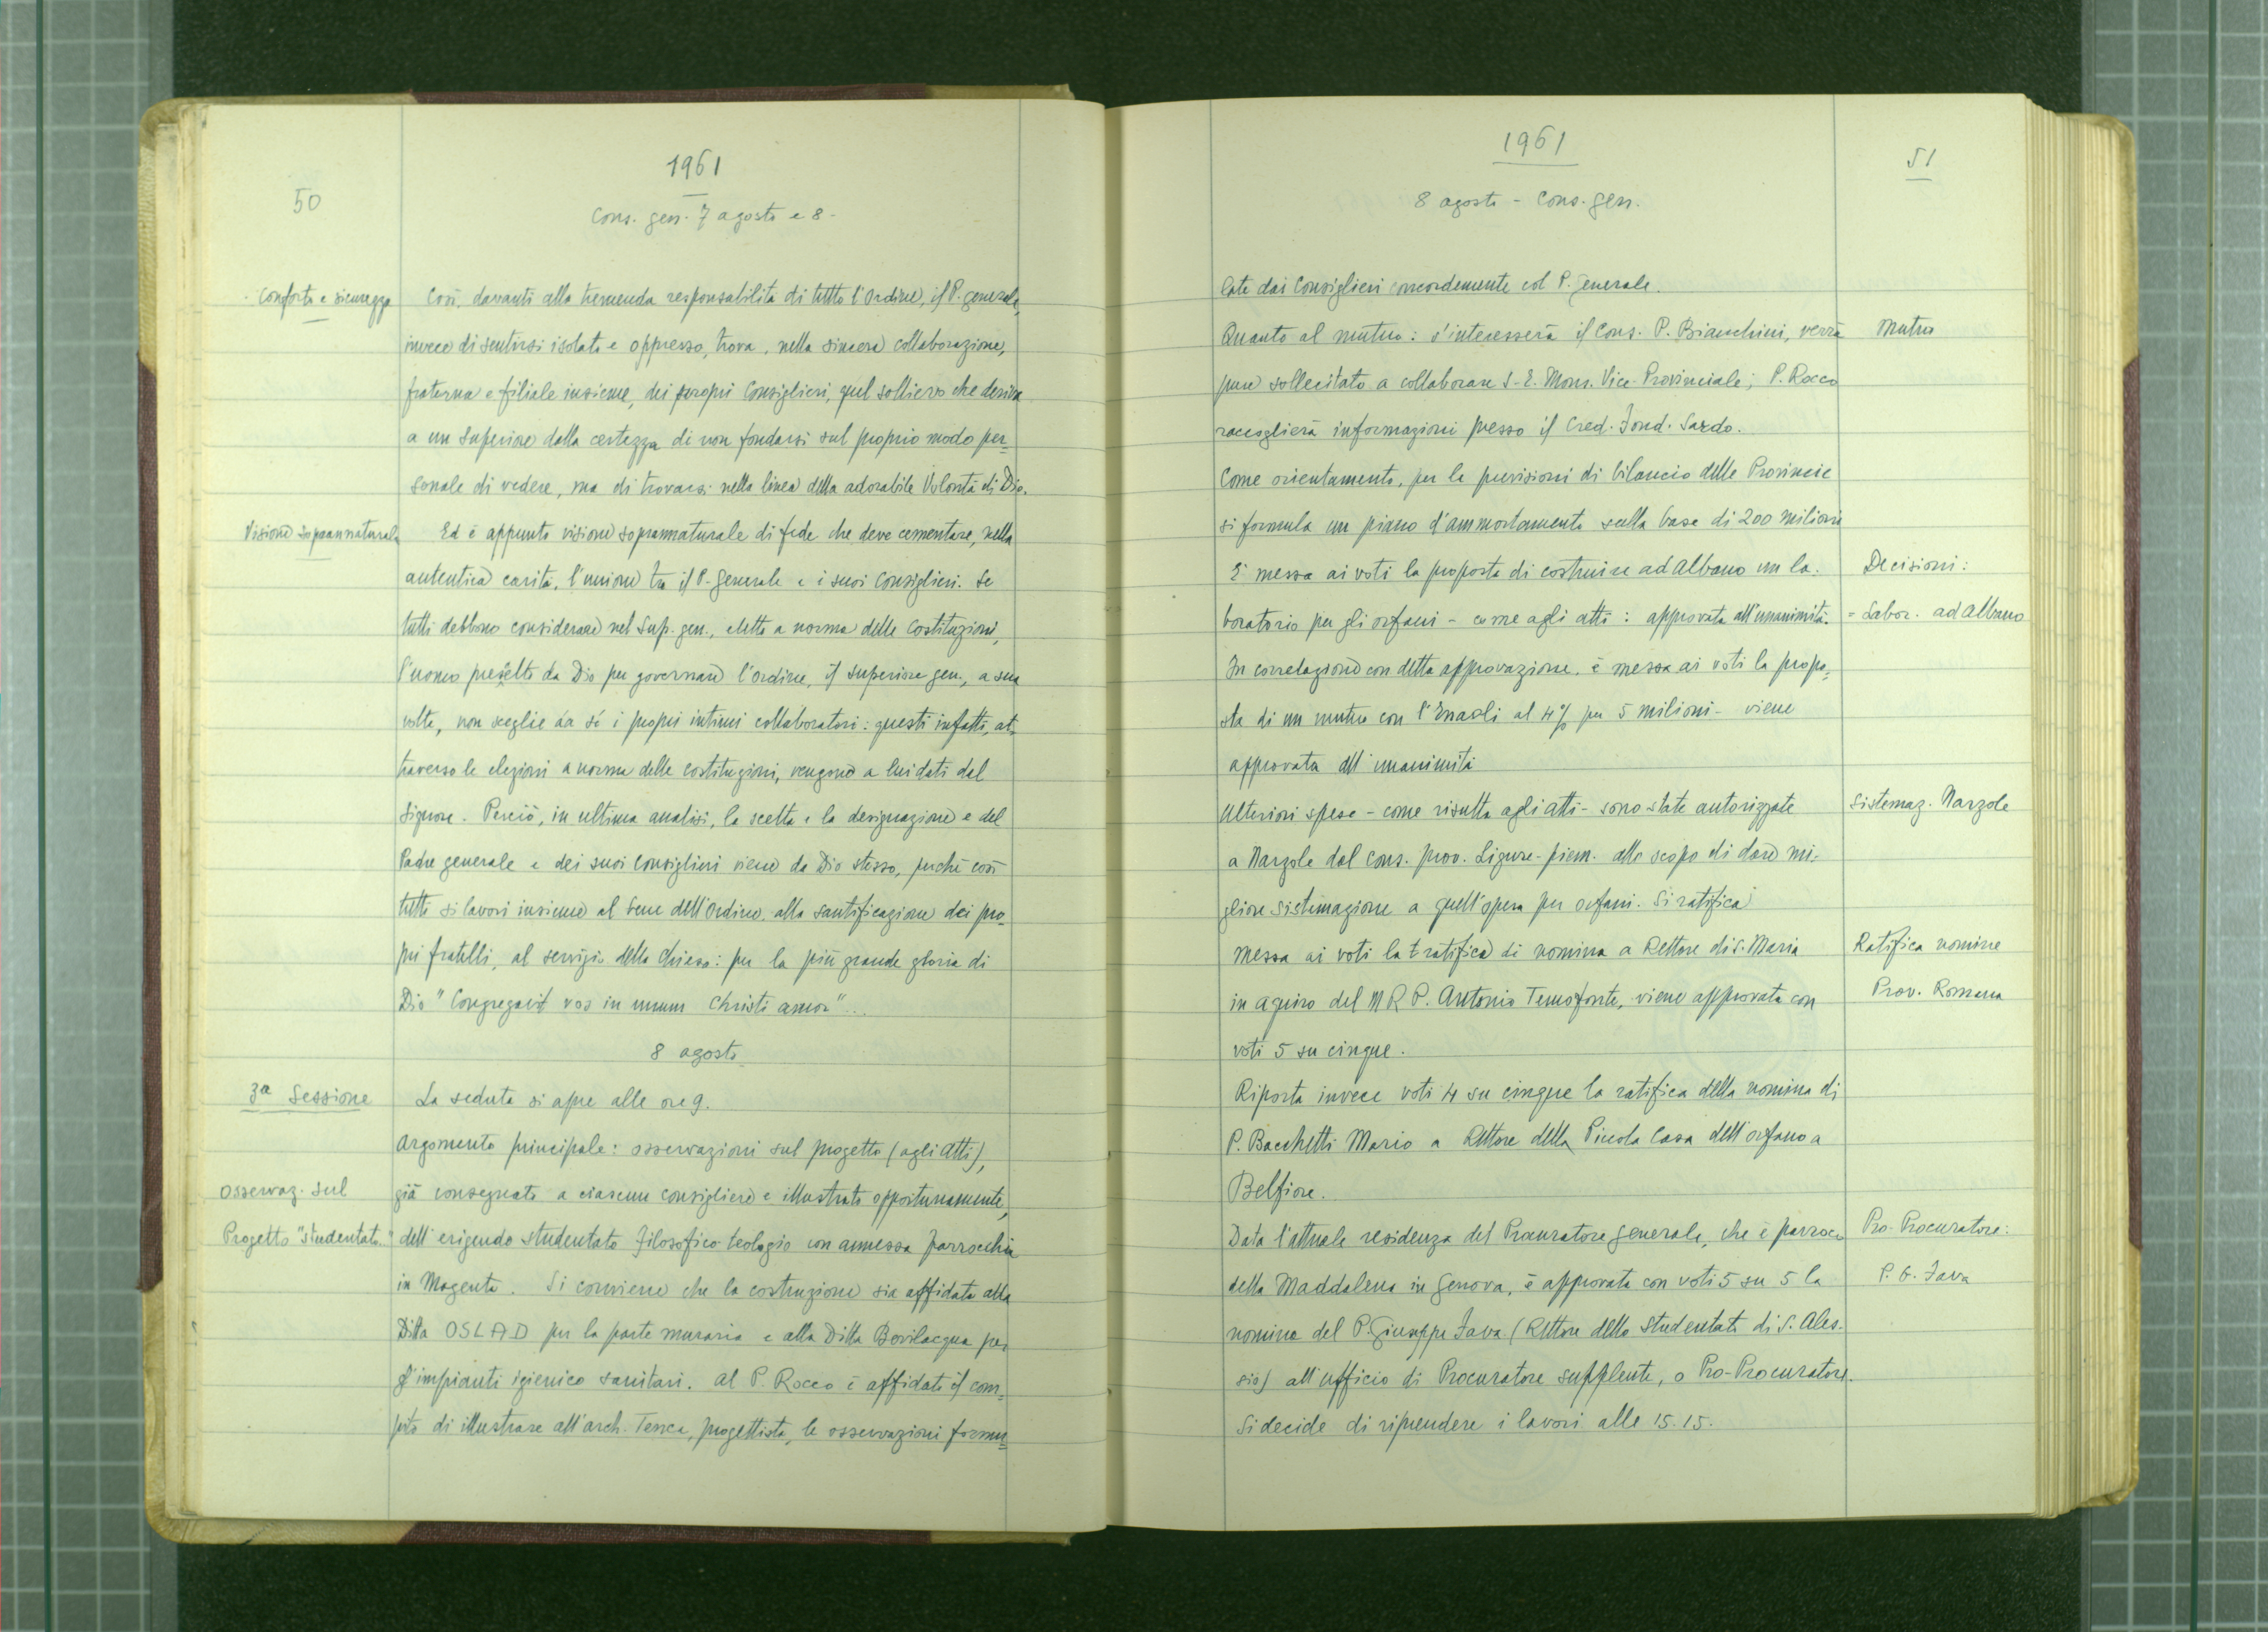 50
1961
Cons. gen. 7 agosto e 8-
Conforto e sicurezza
Così, davanti alla tremenda responsabilità di tutto l'Ordine, il P. generale,
invece di sentirsi isolato e oppresso, trova, nella sincera collaborazione,
fraterna e filiale insieme, dei propri Consiglieri, quel sollievo che deriva
a un Superiore dalla certezza di non fondarsi sul proprio modo per=
sonale di vedere, ma di trovarsi nella linea della adorabile Volontà di Dio.
Visione soprannaturale
Ed è appunto visione soprannaturale di fede che deve cementare, nella
autentica carità, l'unione tra il P. Generale e i suoi Consiglieri. Se
tutti debbono considerare nel Sup. gen., eletto a norma delle Costituzioni,
l'uomo prescelto da Dio per governare l'Ordine, il Superiore gen., a sua
volta, non sceglie da sé i propri intimi collaboratori: questi infatti, at=
traverso le elezioni a norma delle costituzioni, vengono a lui dati dal
Signore. Perciò, in ultima analisi, la scelta e la designazione e del
Padre generale e dei suoi Consiglieri viene da Dio stesso, perché così
tutti si lavori insieme al bene dell'Ordine, alla santificazione dei pro=
pri fratelli, al servizio della Chiesa: per la più grande gloria di
Dio "Congregavit vos in unum Christi amor"...
8 agosto
3ª Sessione
La seduta si apre alle ore 9.
Argomento principale: osservazioni sul progetto (agli Atti),
Osservaz. sul
già consegnato a ciascun consigliere e illustrato opportunamente,
Progetto "Studentato"
dell'erigendo studentato filosofico-teologio con annessa parrocchia
in Magenta. Si conviene che la costruzione sia affidata alla
Ditta OSLAD per la parte muraria e alla Ditta Bevilacqua per
gl'impianti igienico sanitari. Al P. Rocco è affidato il com=
pito di illustrare all'arch. Tenca, progettista, le osservazioni formu=
1961
51
8 agosto - Cons. gen.
late dai Consiglieri concordemente col P. Generale.
Quanto al mutuo: s'interesserà il Cons. P. Bianchini, verrà
Mutuo
pure sollecitato a collaborare S. E. Mons. Vice-Provinciale; P. Rocco
raccoglierà informazioni presso il Cred. Fond. Sardo.
Come orientamento, per le previsioni di bilancio delle Provincie
si formula un piano d'ammortamento sulla base di 200 milioni
E' messa ai voti la proposta di costruire ad Albano un la-
Decisioni:
boratorio per gli orfani - come agli atti: approvata all'unanimità.
= Labor. ad Albano
In correlazione con detta approvazione, è messa ai voti la propo=
sta di un mutuo con l'Enaoli al 4% per 5 milioni - viene
approvata all'unanimità
Ulteriori spese - come risulta agli atti - sono state autorizzate
Sistemaz. Narzole
a Narzole dal cons. prov. Ligure-piem. allo scopo di dare mi-
gliore sistemazione a quell'opera per orfani. Si ratifica
Messa ai voti la ratifica di nomina a Rettore di S. Maria
Ratifica nomine
in Aquiro del M R P. Antonio Temofonte, viene approvata con
Prov. Romana
voti 5 su cinque.
Riporta invece voti 4 su cinque la ratifica della nomina di
P. Bacchetti Mario a Rettore della Piccola Casa dell'orfano a
Belfiore.
Data l'attuale residenza del Procuratore generale, che è parroco
Pro-Procuratore:
della Maddalena in Genova, è approvata con voti 5 su 5 la
P. G. Fava
nomina del P. Giuseppe Fava (Rettore dello Studentato di S. Ales-
sio) all'ufficio di Procuratore supplente, o Pro-Procuratore.
Si decide di riprendere i lavori alle 15.15.